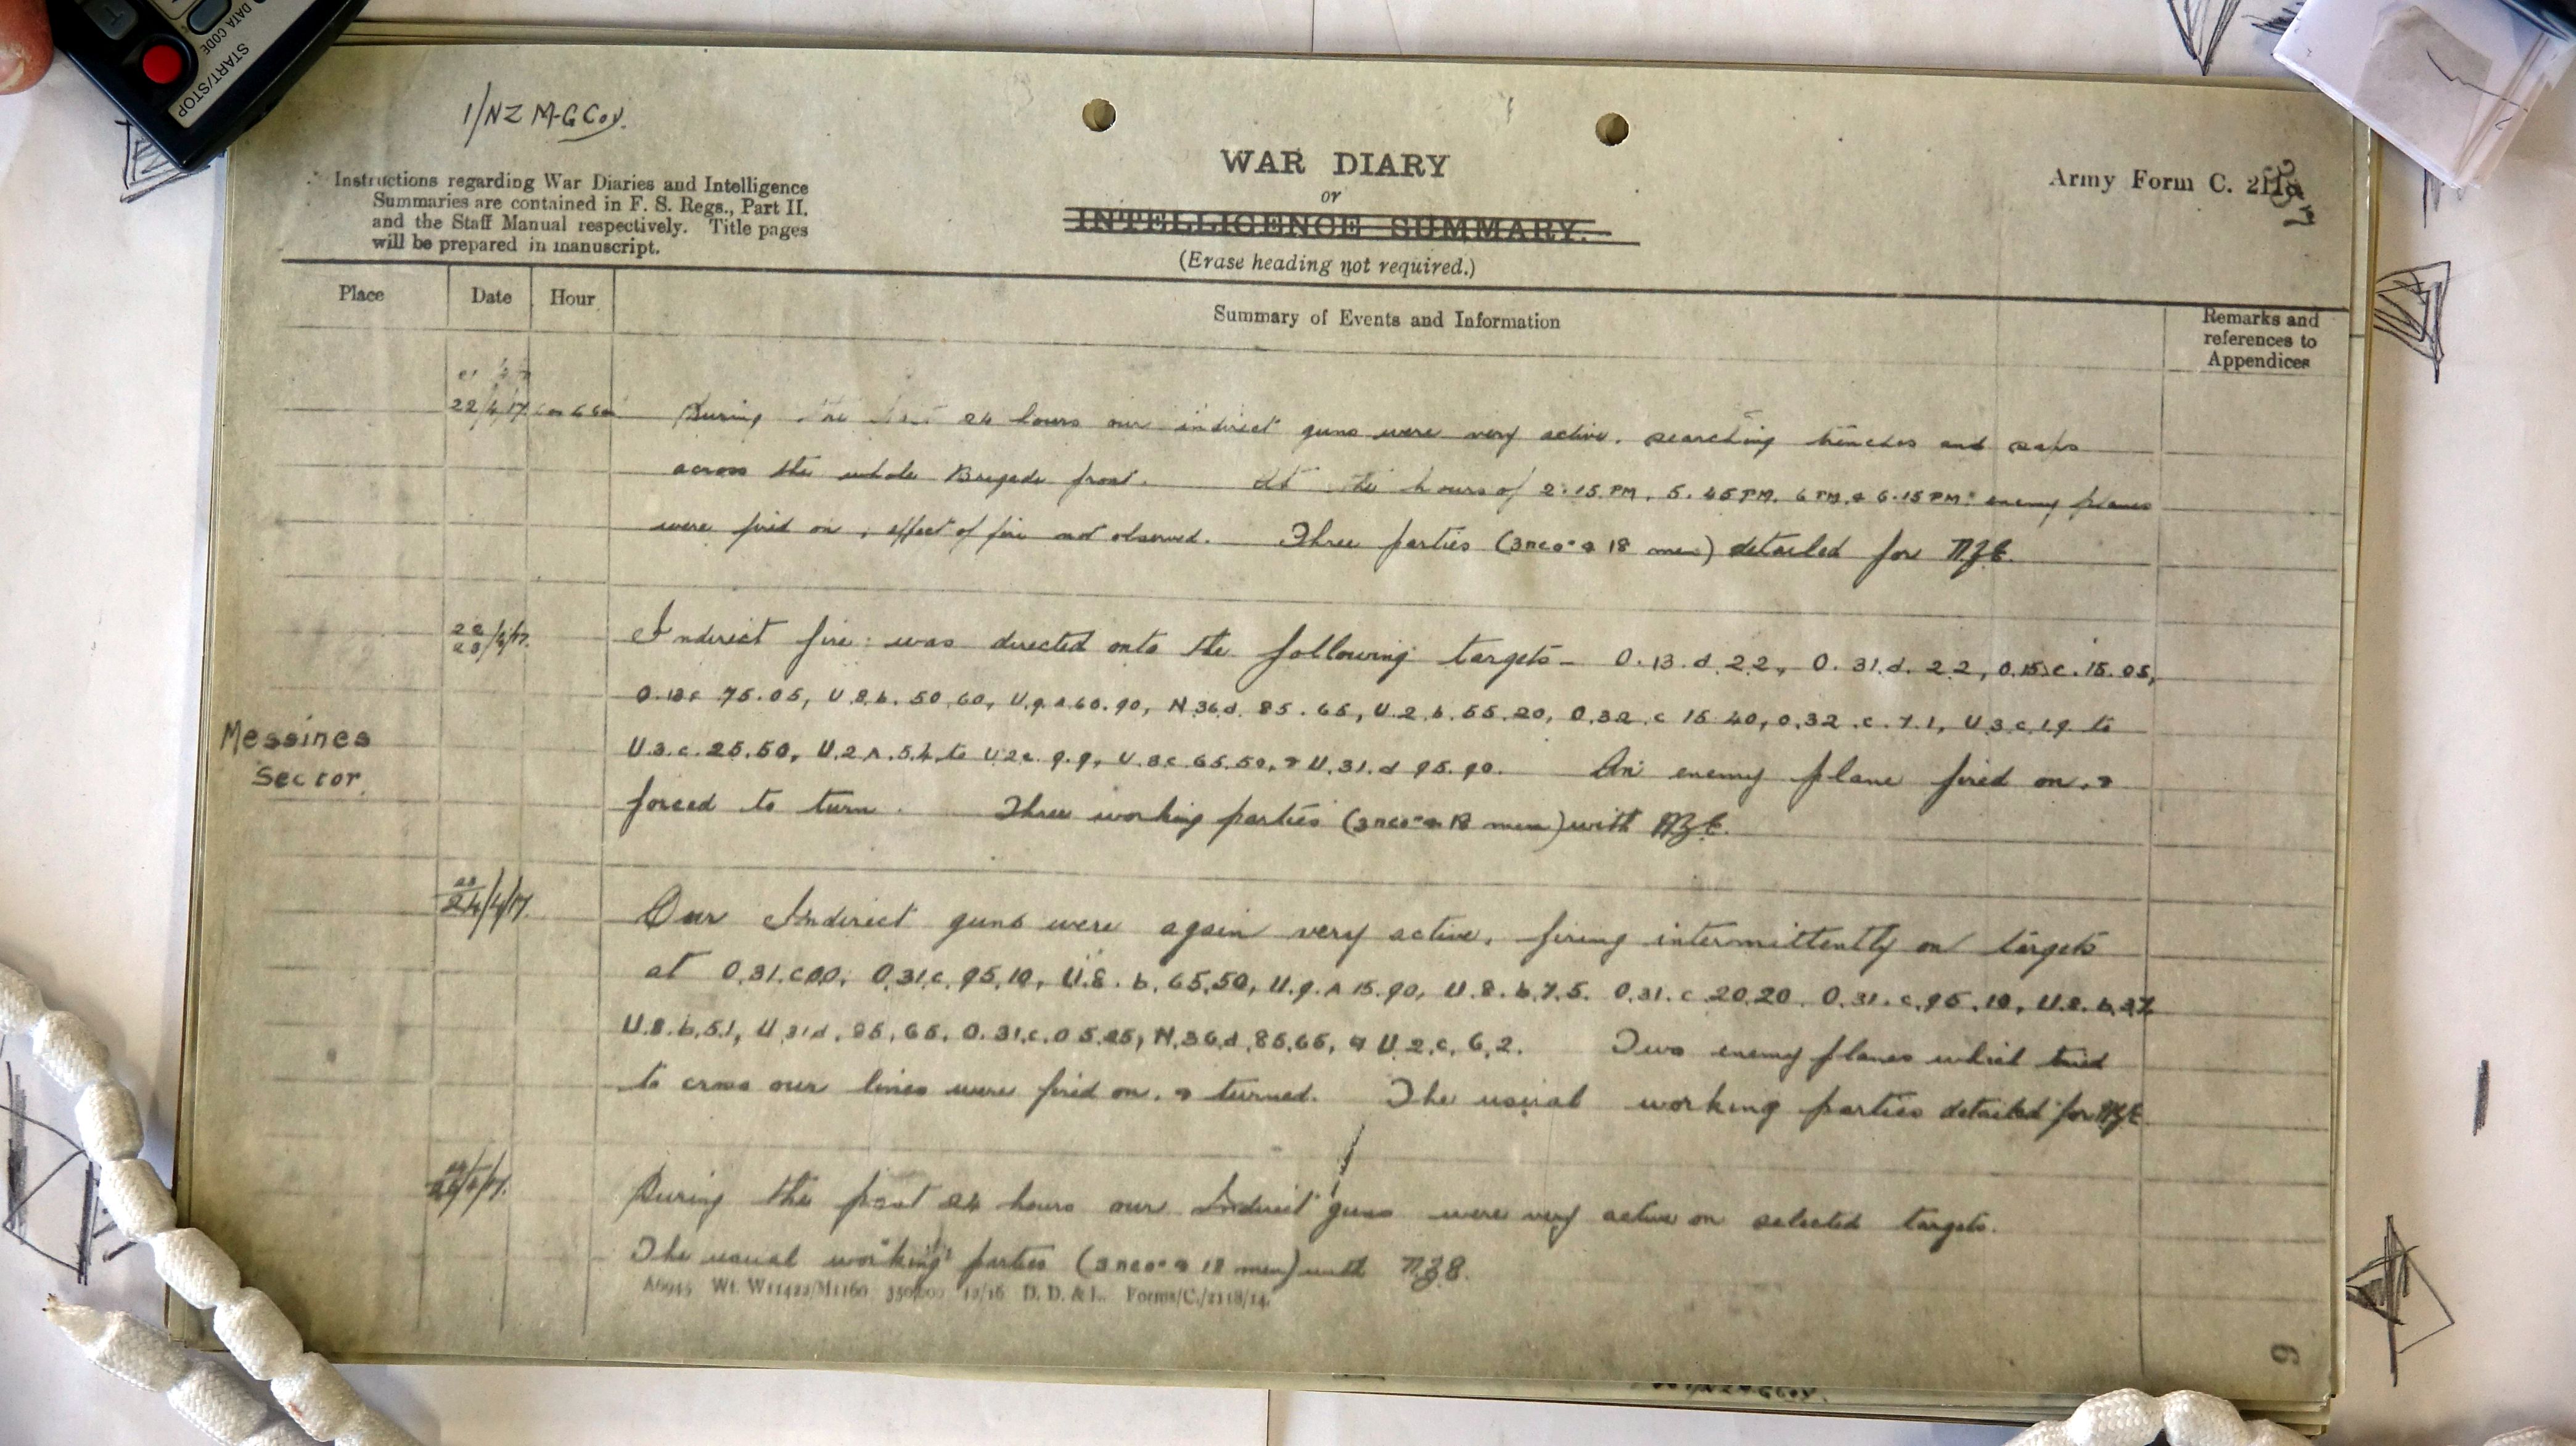 DATA CODE
START/STOP
1/NZ M-G Coy.
Instructions regarding War Diaries and Intelligence
Summaries are contained in F. S. Regs., Part II.
and the Staff Manual respectively. Title pages
will be prepared in manuscript.
WAR DIARY
or
INTELLIGENCE SUMMARY.
(Erase heading not required.)
Army Form C.
Place Date Hour Summary of Events and Information Remarks and references to Appendices
22/4/17 During the 24 hours our indirect guns were very active, searching trenches and saps
across the whole Brigade front. At the hours of 2.15 PM, 5.45 PM, 6 PM & 6.15 PM enemy planes
were fired on, effect of fire not observed. Three parties (3 nco's & 18 men) detailed for N.Z.E.
22/23/4/17. Indirect fire was directed onto the following targets- O.13.d.22, O.31.d.22, O.15.c.15.05,
75.05, U.8.b.50.60, U.9.A.60.90, N.36.d.85.65, U.2.b.55.20, O.32.c 15 40, O.32.c.7.1, U.3.c.1.9 to
Messines
Sector.
U.3.c.25.50, U.2.A.5.4 to U2c.9.9, U.3c.65.50, & U.31.d 95.90. An enemy plane fired on, &
forced to turn. Three working parties (3 nco's & 18 men) with N.Z.E.
23/24/4/17. Our Indirect guns were again very active, firing intermittently on targets
at O.31.c.00, O.31.c.95,10, U.8.b,65,50, U.9.A 15.90, U.8.b.7.5. O.31.c 20.20 O.31.c.95.10, U.8.b.
U.8.b,5.1, U 31d, 85,65, O.31.c.05.25, N.36.d,85.65, & U.2.c,6,2. Two enemy planes which tried
to cross our lines were fired on, & turned. The usual working parties detailed for N.Z.E.
During the past 24 hours our Indirect guns were very active on selected targets.
The usual working parties (3 nco's & 18 men) with N.Z.E.
350,000 12/16 D. D. & L. Forms/C./2118/14.
9